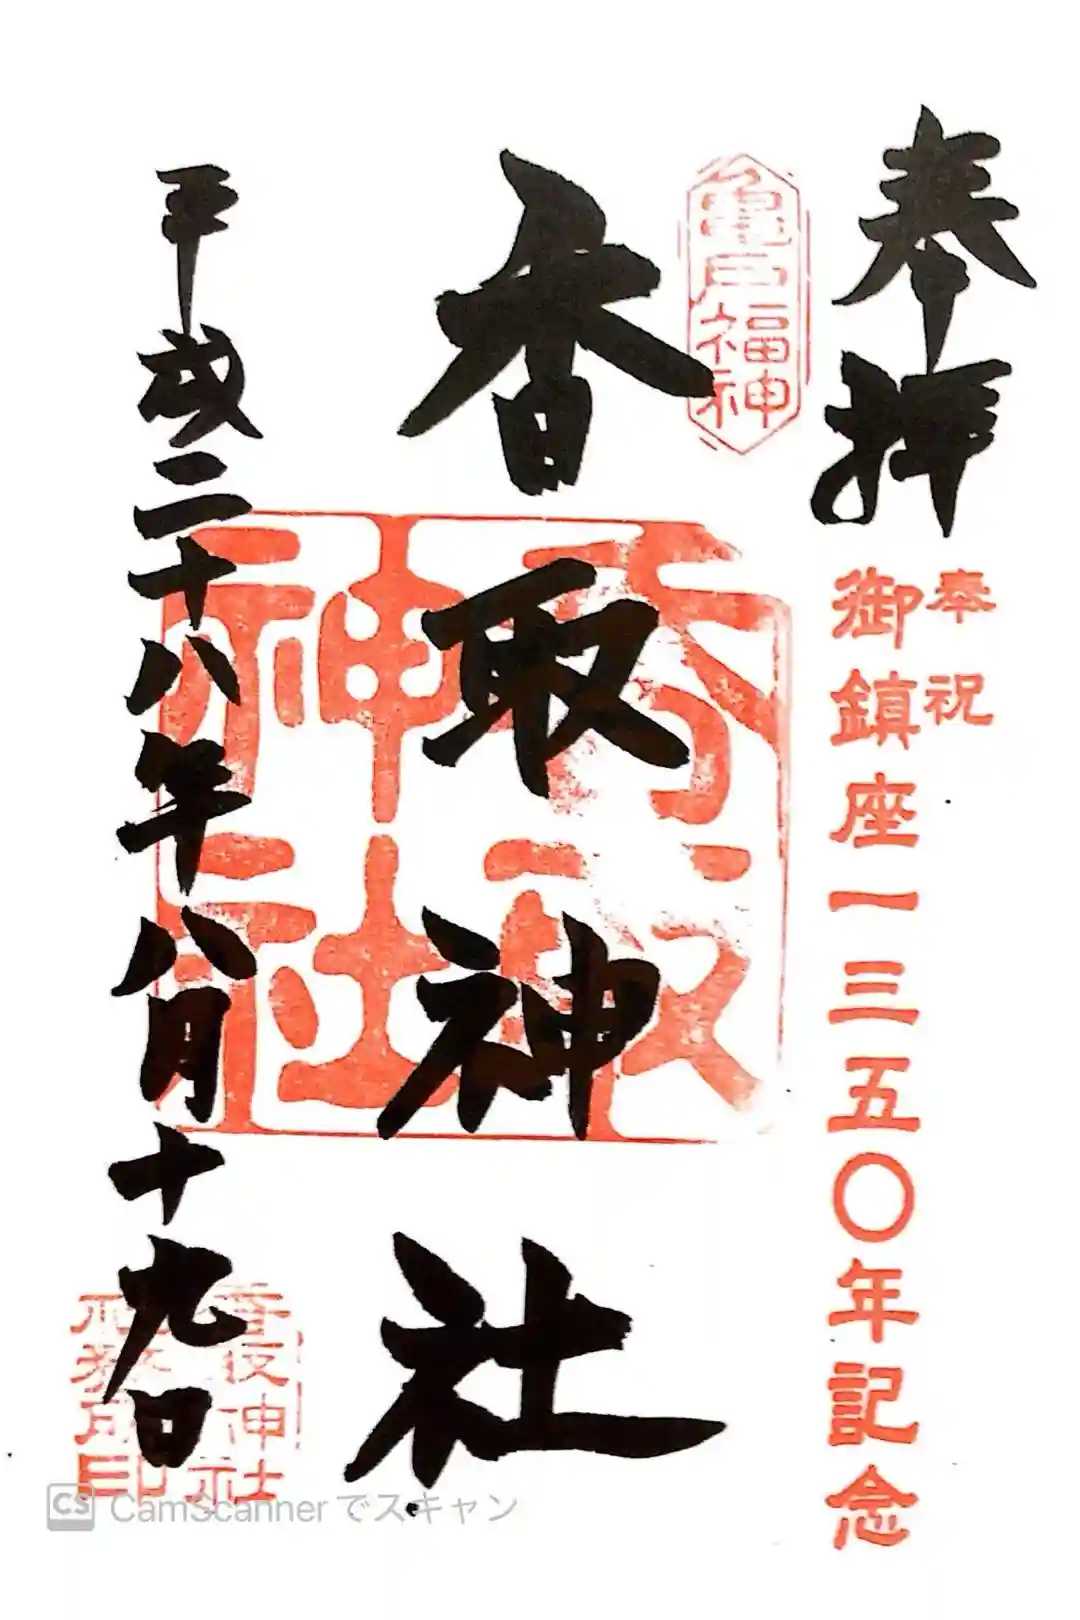 奉拝
奉祝
御鎮座一三五〇年記念
亀戸福神
香取神社
香取神社
平成二十八年八月十九日
香取神社
社務所印
CS CamScannerでスキャン